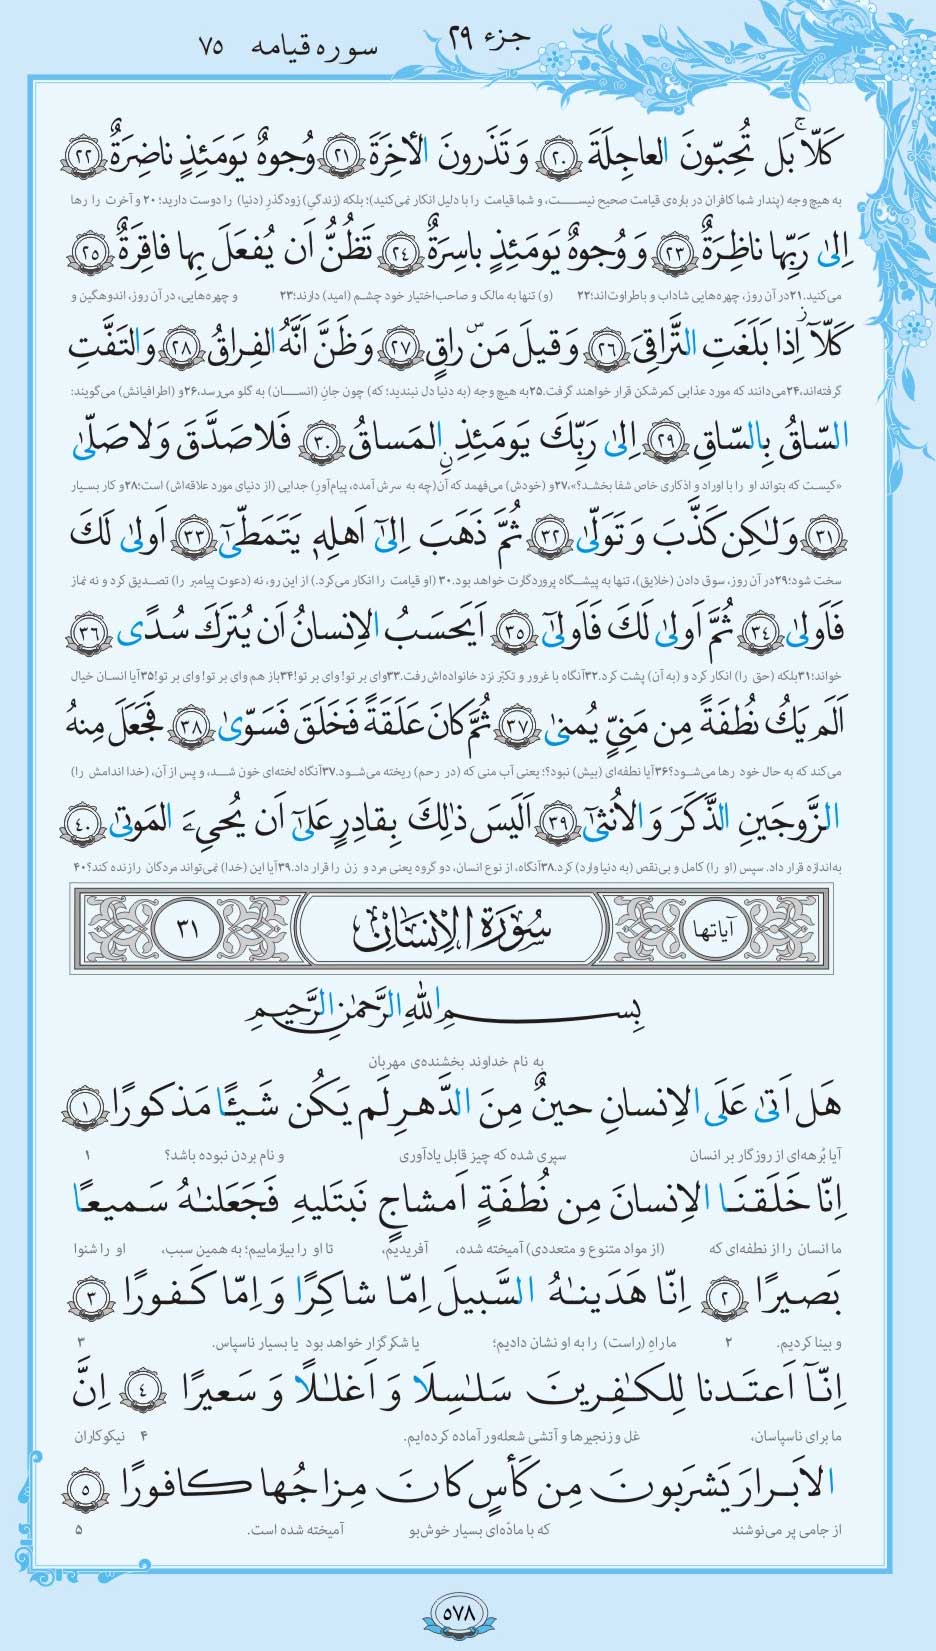 جزء ۲۹ سوره قیامه ۷۵
كَلّا بَل تُحِبّونَ العاجِلَةَ ۲۰ وَ تَذَرونَ الأخِرَةَ ۲۱ وُجوهٌ يَومَئِذٍ ناضِرَةٌ ۲۲
به هیچ وجه (پندار شما کافران در باره‌ی قیامت صحیح نیست، و شما قیامت را با دلیل انکار نمی‌کنید)؛ بلکه (زندگیِ) زودگذرِ (دنیا) را دوست دارید؛ ۲۰ و آخرت را رها
اِلىٰ رَبِّها ناظِرَةٌ ۲۳ وَ وُجوهٌ يَومَئِذٍ باسِرَةٌ ۲۴ تَظُنُّ اَن يُفعَلَ بِها فاقِرَةٌ ۲۵
می‌کنید.۲۱ در آن روز، چهره‌هایی شاداب و باطراوت‌اند؛۲۲ (و) تنها به مالک و صاحب‌اختیار خود چشم (امید) دارند؛۲۳ و چهره‌هایی، در آن روز، اندوهگین و
كَلّآ اِذا بَلَغَتِ التَّراقِىَ ۲۶ وَ قيلَ مَن راقٍ ۲۷ وَ ظَنَّ اَنَّهُ الفِراقُ ۲۸ وَ التَفَّتِ
گرفته‌اند،۲۴ می‌دانند که مورد عذابی کمرشکن قرار خواهند گرفت.۲۵ به هیچ وجه (به دنیا دل نبندید؛ که) چون جانِ (انسان) به گلو می‌رسد،۲۶ و (اطرافیانش) می‌گویند:
السّاقُ بِالسّاقِ ۲۹ اِلىٰ رَبِّكَ يَومَئِذٍ المَساقُ ۳۰ فَلا صَدَّقَ وَ لا صَلّىٰ
«کیست که بتواند او را با اوراد و اذکاری خاص شفا بخشد؟»،۲۷ و (خودش) می‌فهمد که آن(چه به سرش آمده، پیام‌آورِ) جدایی (از دنیای مورد علاقه‌اش) است؛۲۸ و کار بسیار
۳۱ وَ لٰكِن كَذَّبَ وَ تَوَلّىٰ ۳۲ ثُمَّ ذَهَبَ اِلىٰٓ اَهلِهٖ يَتَمَطّىٰٓ ۳۳ اَولىٰ لَكَ
سخت شود؛۲۹ در آن روز، سوق دادن (خلایق)، تنها به پیشگاه پروردگارت خواهد بود.۳۰ (او قیامت را انکار می‌کرد.) از این رو، نه (دعوت پیامبر را) تصدیق کرد و نه نماز
فَاَولىٰ ۳۴ ثُمَّ اَولىٰ لَكَ فَاَولىٰٓ ۳۵ اَيَحسَبُ الاِنسانُ اَن يُترَكَ سُدًى ۳۶
خواند؛۳۱ بلکه (حق را) انکار کرد و (به آن) پشت کرد.۳۲ آنگاه با غرور و تکبّر نزد خانواده‌اش رفت.۳۳ وای بر تو! وای بر تو!۳۴ باز هم وای بر تو! وای بر تو!۳۵ آیا انسان خیال
اَلَم يَكُ نُطفَةً مِن مَنِىٍّ يُمنىٰ ۳۷ ثُمَّ كانَ عَلَقَةً فَخَلَقَ فَسَوّىٰ ۳۸ فَجَعَلَ مِنهُ
می‌کند که به حال خود رها می‌شود؟۳۶ آیا نطفه‌ای (بیش) نبود؟؛ یعنی آب منی که (در رحم) ریخته می‌شود.۳۷ آنگاه لخته‌ای خون شد، و پس از آن، (خدا اندامش را)
الزَّوجَينِ الذَّكَرَ وَ الاُنثىٰٓ ۳۹ اَلَيسَ ذٰلِكَ بِقادِرٍ عَلىٰٓ اَن يُحيِىَ المَوتىٰ ۴۰
به‌اندازه قرار داد. سپس (او را) کامل و بی‌نقص (به دنیا وارد) کرد.۳۸ آنگاه، از نوع انسان، دو گروه یعنی مرد و زن را قرار داد.۳۹ آیا این (خدا) نمی‌تواند مردگان را زنده کند؟۴۰
آیاتها سُورَةُ الإنسَان ۳۱
بِسمِ اللهِ الرَّحمٰنِ الرَّحيمِ
به نام خداوند بخشنده‌ی مهربان
هَل اَتىٰ عَلَى الاِنسانِ حينٌ مِنَ الدَّهرِ لَم يَكُن شَيـًٔا مَذكورًا ۱
آیا بُرهه‌ای از روزگار بر انسان سپری شده که چیز قابل یادآوری و نام بردن نبوده باشد؟ ۱
اِنّا خَلَقنَا الاِنسانَ مِن نُطفَةٍ اَمشاجٍ نَبتَليهِ فَجَعَلنٰهُ سَميعًا
ما انسان را از نطفه‌ای که (از مواد متنوع و متعددی) آمیخته شده، آفریدیم، تا او را بیازماییم؛ به همین سبب، او را شنوا
بَصيرًا ۲ اِنّا هَدَينٰهُ السَّبيلَ اِمّا شاكِرًا وَ اِمّا كَفورًا ۳
و بینا کردیم. ۲ ما راهِ (راست) را به او نشان دادیم؛ یا شکرگزار خواهد بود یا بسیار ناسپاس. ۳
اِنّآ اَعتَدنا لِلكٰفِرينَ سَلٰسِلَا وَ اَغلٰلًا وَ سَعيرًا ۴ اِنَّ
ما برای ناسپاسان، غل و زنجیرها و آتشی شعله‌ور آماده کرده‌ایم. ۴ نیکوکاران
الاَبرارَ يَشرَبونَ مِن كَأسٍ كانَ مِزاجُها كافورًا ۵
از جامی پر می‌نوشند که با مادّه‌ای بسیار خوش‌بو آمیخته شده است. ۵
۵۷۸